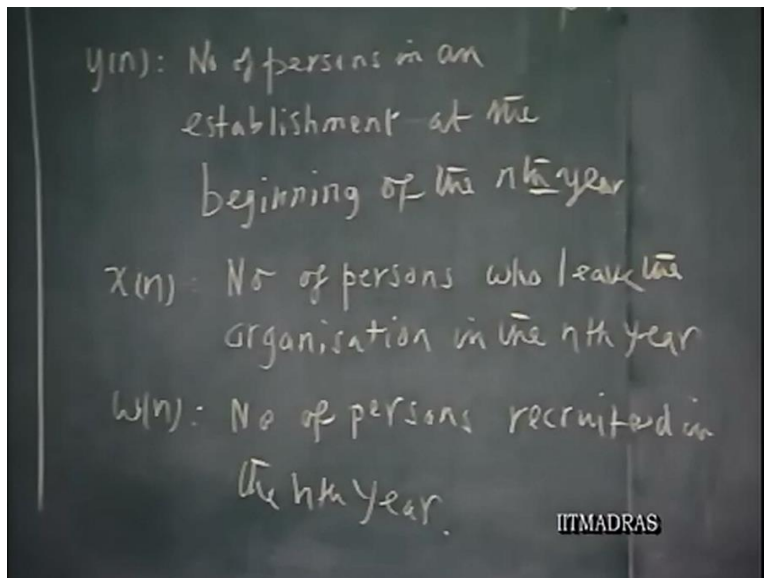 y(n): No of persons in an
establishment at the
beginning of the nth year
x(n): No of persons who leave the
organisation in the nth year
w(n): No of persons recruited in
the nth year.
IITMADRAS